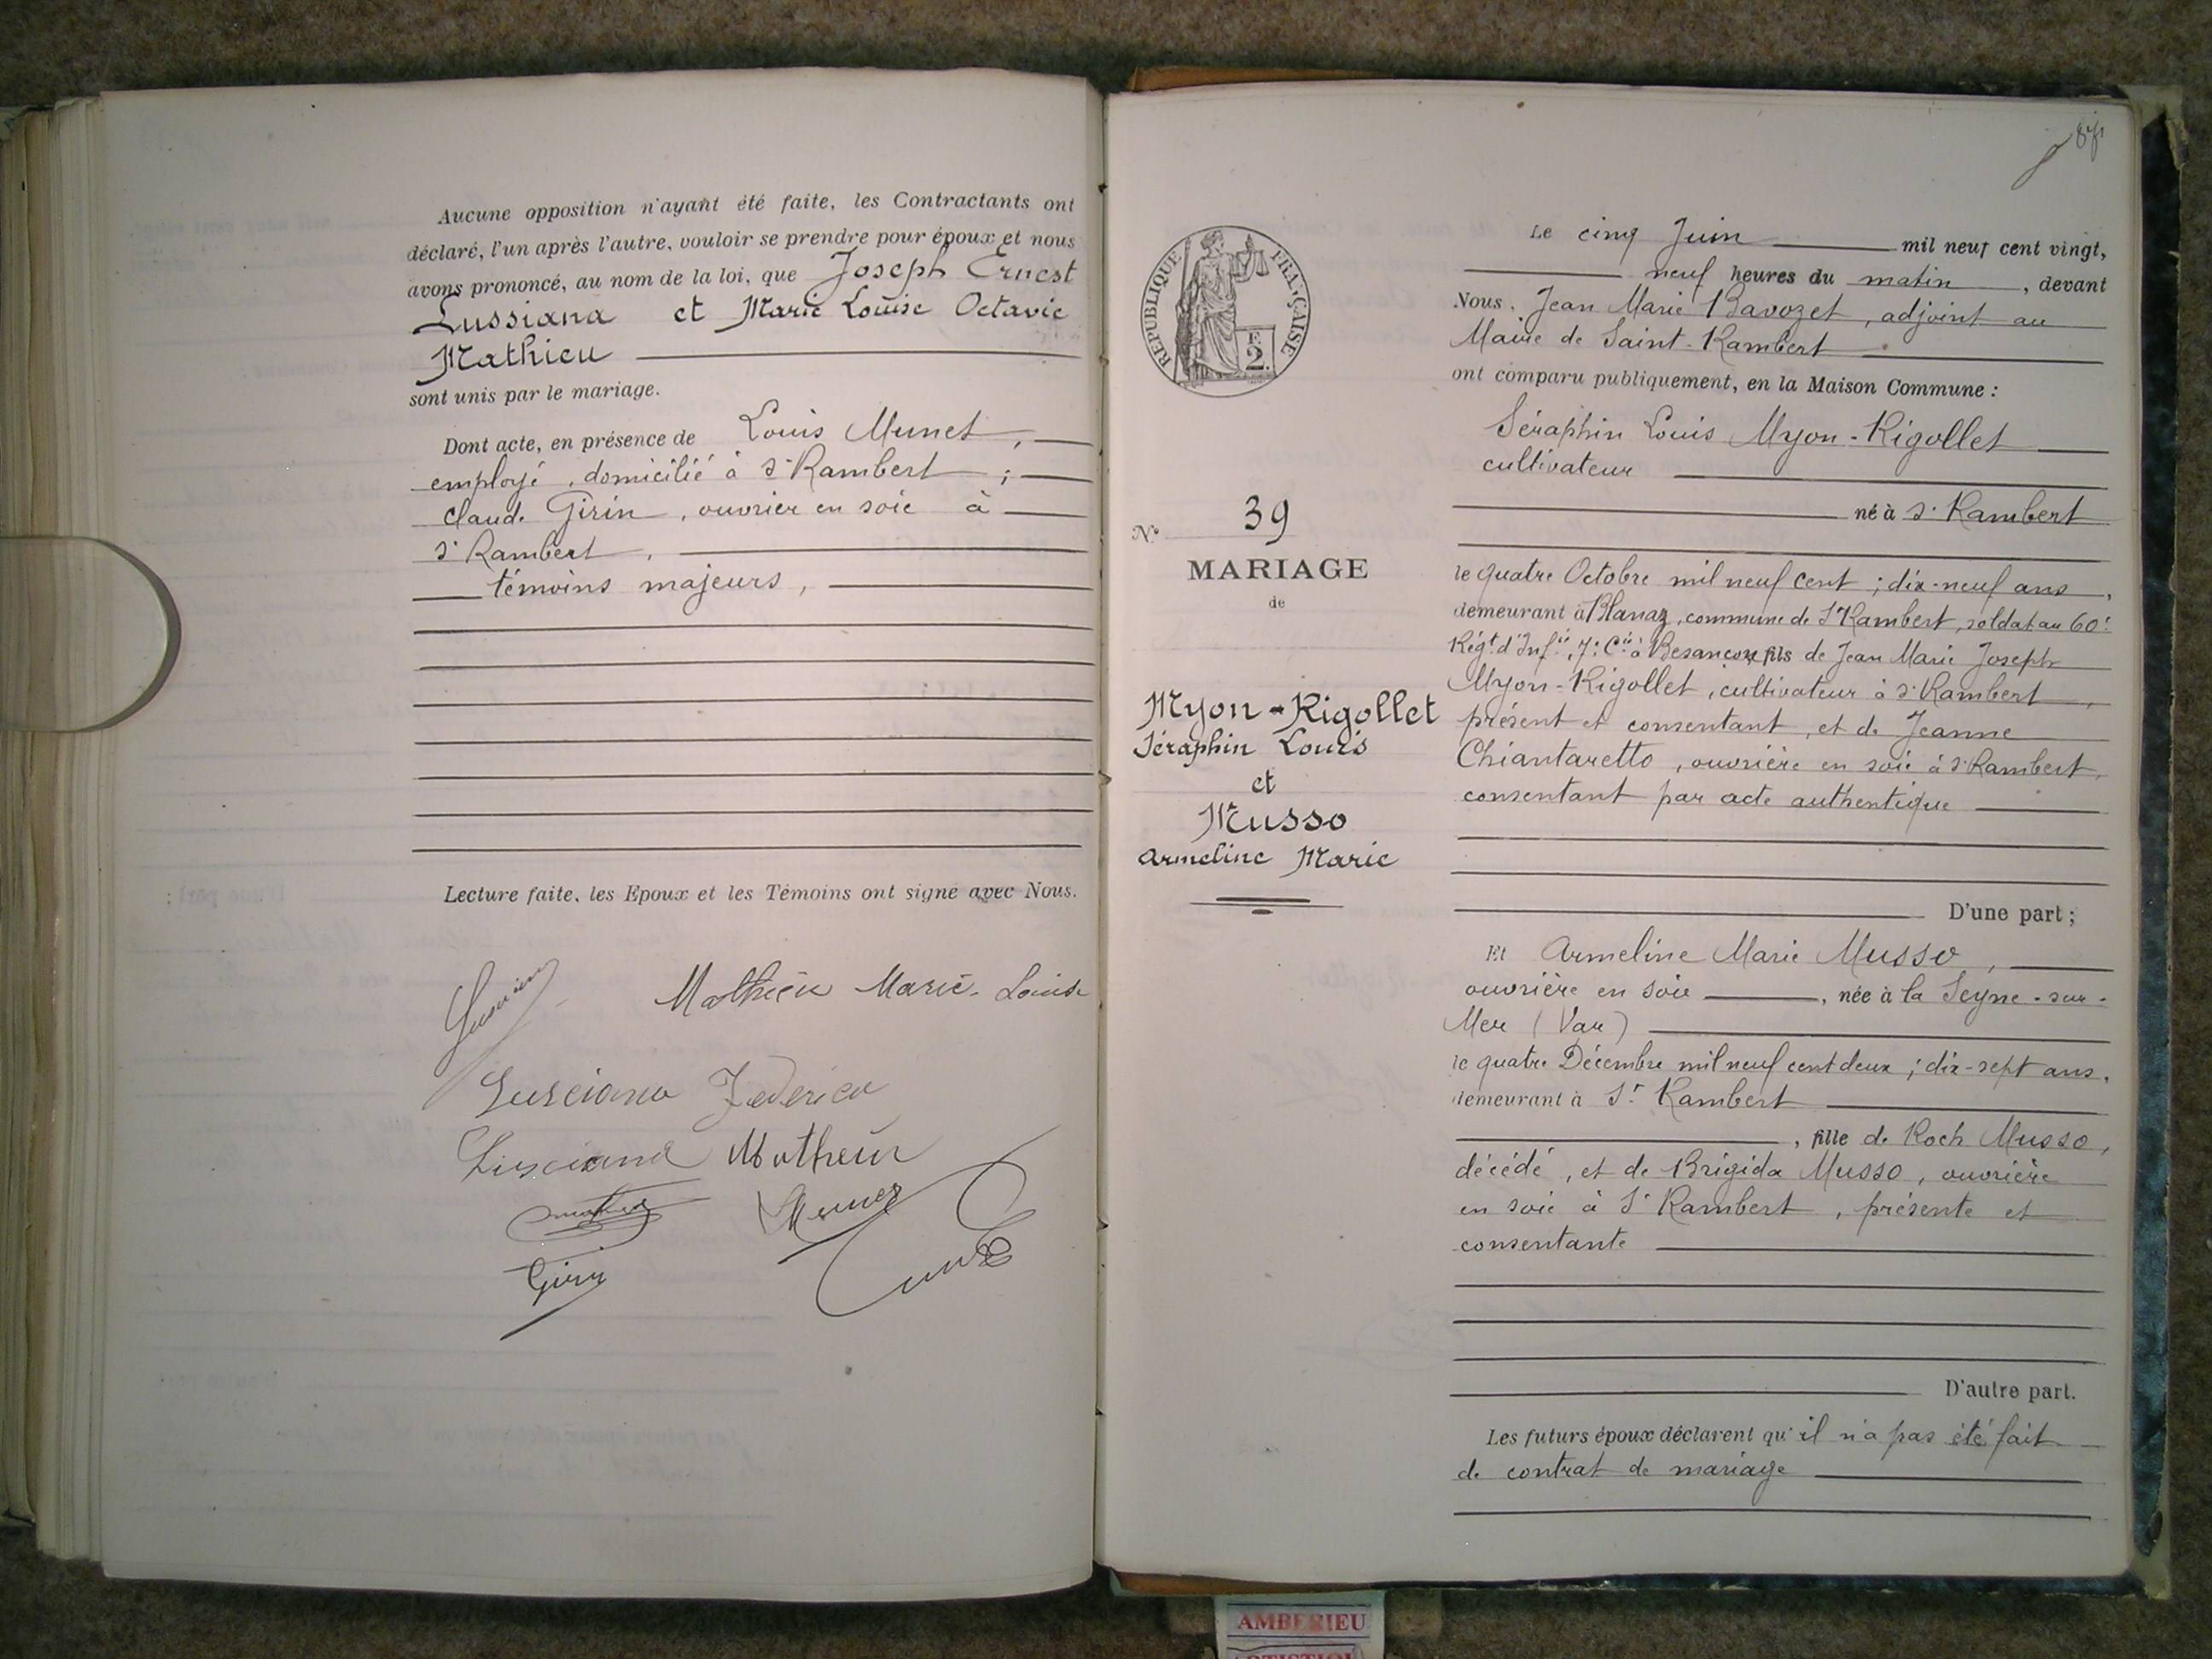 Aucune opposition n'ayant été faite, les Contractants ont
déclaré, l'un après l'autre, vouloir se prendre pour époux et nous
avons prononcé, au nom de la loi, que Joseph Ernest
Lussiana et Marie Louise Octavie
Mathieu
sont unis par le mariage.
Dont acte, en présence de Louis Munet,
employé, domicilié à St Rambert ;
Claude Girin, ouvrier en soie à
St Rambert,
témoins majeurs,
Lecture faite, les Epoux et les Témoins ont signé avec Nous.
Mathieu Marie-Louise
Lusciana Federico
Lusciana Mathieu
Munet
Girin
87
RÉPUBLIQUE FRANÇAISE
F.
2.
No 39
MARIAGE
de
Myon-Rigollet
Séraphin Louis
et
Musso
Armeline Marie
Le cinq Juin mil neuf cent vingt,
neuf heures du matin, devant
Nous, Jean Marie Bavozet, adjoint au
Maire de Saint-Rambert
ont comparu publiquement, en la Maison Commune :
Séraphin Louis Myon-Rigollet
cultivateur
né à St Rambert
le quatre Octobre mil neuf cent ; dix-neuf ans,
demeurant à Blanaz, commune de St Rambert, soldat au 60e
Régt d'Infie, 7e Cie à Besançon fils de Jean Marie Joseph
Myon-Rigollet, cultivateur à St Rambert,
présent et consentant, et de Jeanne
Chiantaretto, ouvrière en soie à St Rambert,
consentant par acte authentique
D'une part ;
Et Armeline Marie Musso,
ouvrière en soie, née à la Seyne-sur-
Mer (Var)
le quatre Décembre mil neuf cent deux ; dix-sept ans,
demeurant à St Rambert
, fille de Roch Musso,
décédé, et de Brigida Musso, ouvrière
en soie à St Rambert, présente et
consentante
D'autre part.
Les futurs époux déclarent qu'il n'a pas été fait
de contrat de mariage
AMBERIEU